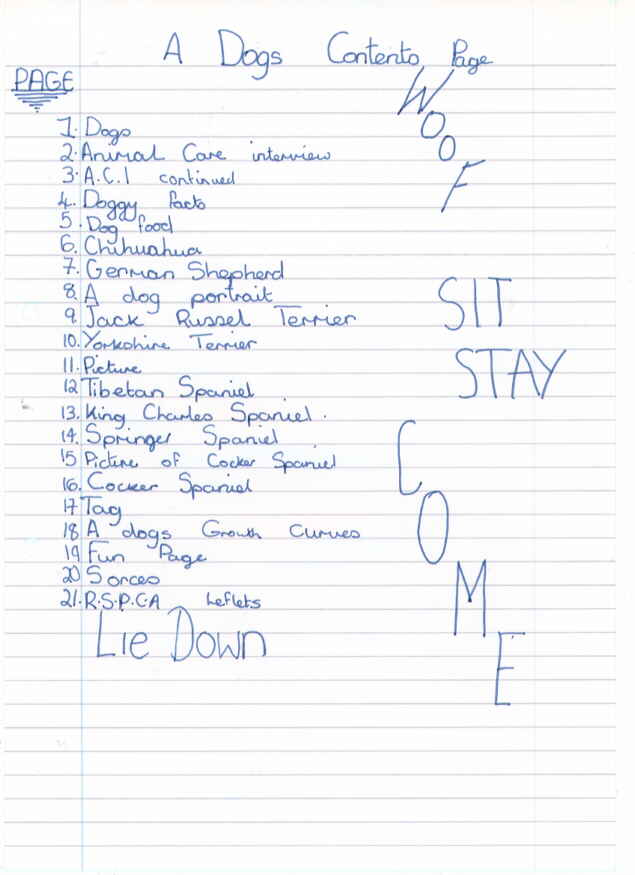 A Dogs Contents Page
PAGE
1. Dogs
2. Animal Care interview
3. A.C.I continued
4. Doggy facts
5. Dog food
6. Chihuahua
7. German Shepherd
8. A dog portrait
9. Jack Russel Terrier
10. Yorkshire Terrier
11. Picture
12 Tibetan Spaniel
13. King Charles Spaniel.
14. Springer Spaniel
15 Picture of Cocker Spaniel
16. Cocker Spaniel
17 Tag
18 A dogs Growth Curves
19 Fun Page
20 Sorces
21. R.S.P.C.A Leflets
Lie Down
WOOF
SIT
STAY
COME